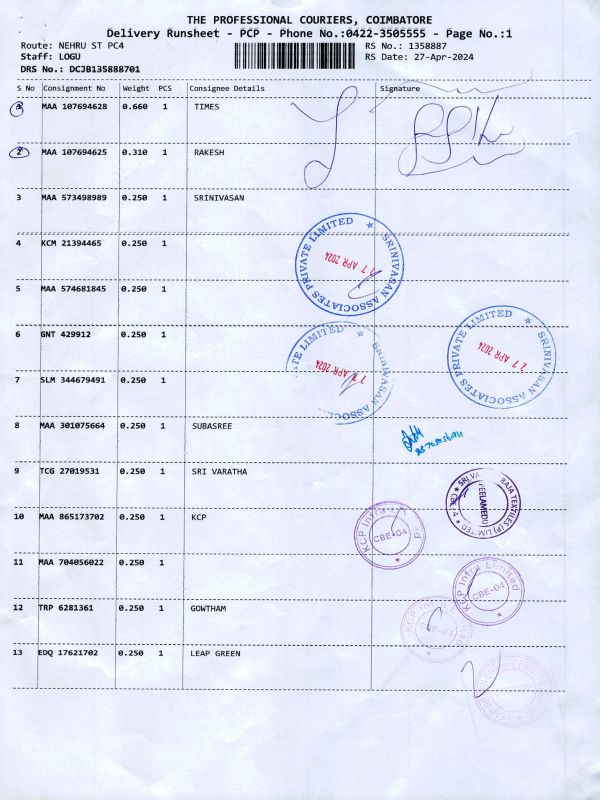 THE PROFESSIONAL COURIERS, COIMBATORE
Delivery Runsheet - PCP - Phone No.:0422-3505555 - Page No.:1
Route: NEHRU ST PC4 RS No.: 1358887
Staff: LOGU RS Date: 27-Apr-2024
DRS No.: DCJB135888701
S No Consignment No Weight PCS Consignee Details Signature
1 MAA 107694628 0.660 1 TIMES
2 MAA 107694625 0.310 1 RAKESH
3 MAA 573498989 0.250 1 SRINIVASAN
SRINIVASAN ASSOCIATES PRIVATE LIMITED ★
27 APR 2024
4 KCM 21394465 0.250 1
5 MAA 574681845 0.250 1
6 GNT 429912 0.250 1
SRINIVASAN ASSOCIATES PRIVATE LIMITED ★
27 APR 2024
SRINIVASAN ASSOCIATES PRIVATE LIMITED ★
27 APR 2024
7 SLM 344679491 0.250 1
8 MAA 301075664 0.250 1 SUBASREE
9 TCG 27019531 0.250 1 SRI VARATHA
RAJA TEXTILES (P) LIMITED ★
PEELAMEDU
10 MAA 865173702 0.250 1 KCP
KCP Infra Limited
CBE-04
11 MAA 704056022 0.250 1
KCP Infra Limited
CBE-04
12 TRP 6281361 0.250 1 GOWTHAM
CBE-04
13 EDQ 17621702 0.250 1 LEAP GREEN